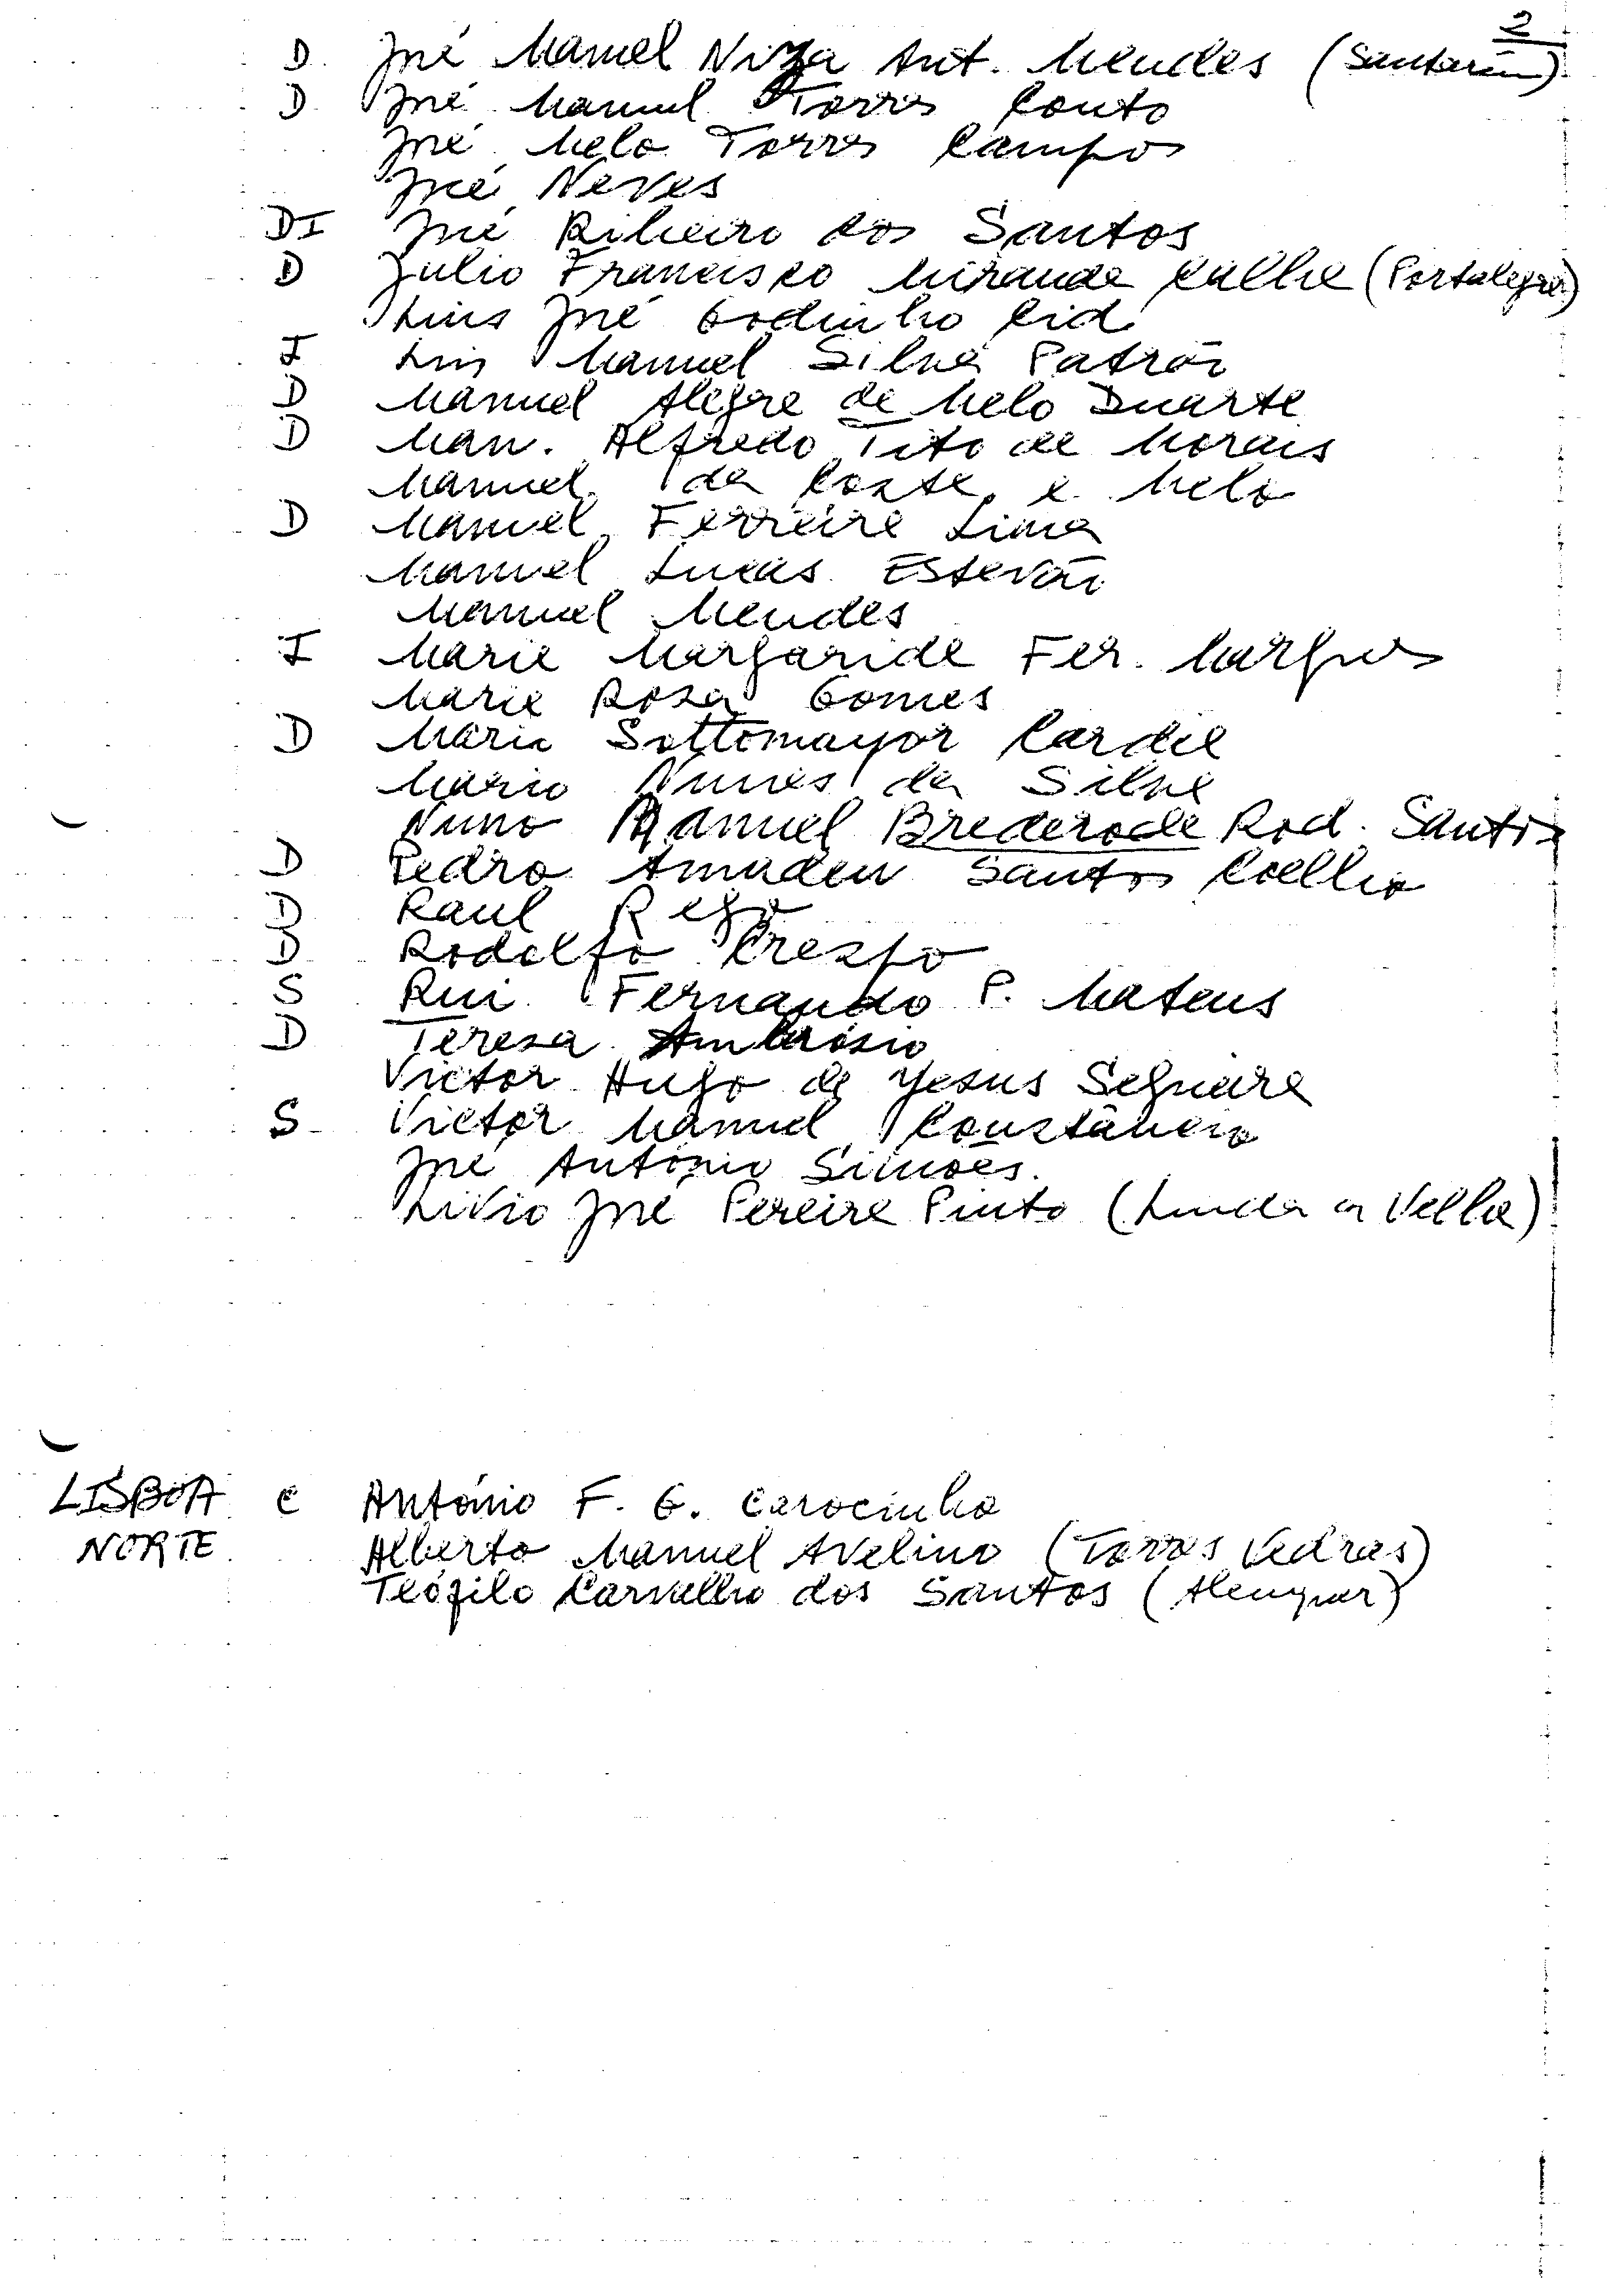 2
D. José Manuel Niza Ant. Mendes (Santarém)
D. José Manuel Torres Couto
José Melo Torres Campos
José Neves
DI José Ribeiro dos Santos
D Júlio Francisco Miranda Calha (Portalegre)
Luís José Godinho Cid
I Luís Manuel Silva Patrão
D Manuel Alegre de Melo Duarte
D Man. Alfredo Tito de Morais
Manuel da Costa e Melo
D Manuel Ferreira Lima
Manuel Lucas Estevão
Manuel Mendes
I Maria Margarida Fer. Marques
Maria Rosa Gomes
D Mário Sottomayor Cardia
Mário Nunes da Silva
Nuno Manuel Brederode Rod. Santos
D Pedro Amadeu Santos Coelho
D Raul Rego
D Rodolfo Crespo
S Rui Fernando P. Mateus
D Teresa Ambrósio
Victor Hugo de Jesus Sequeira
S Victor Manuel Constâncio
José António Simões.
Livio José Pereira Pinto (Linda a Velha)
LISBOA C António F. G. Carocinho
NORTE Alberto Manuel Avelino (Torres Vedras)
Teófilo Carvalho dos Santos (Alenquer)